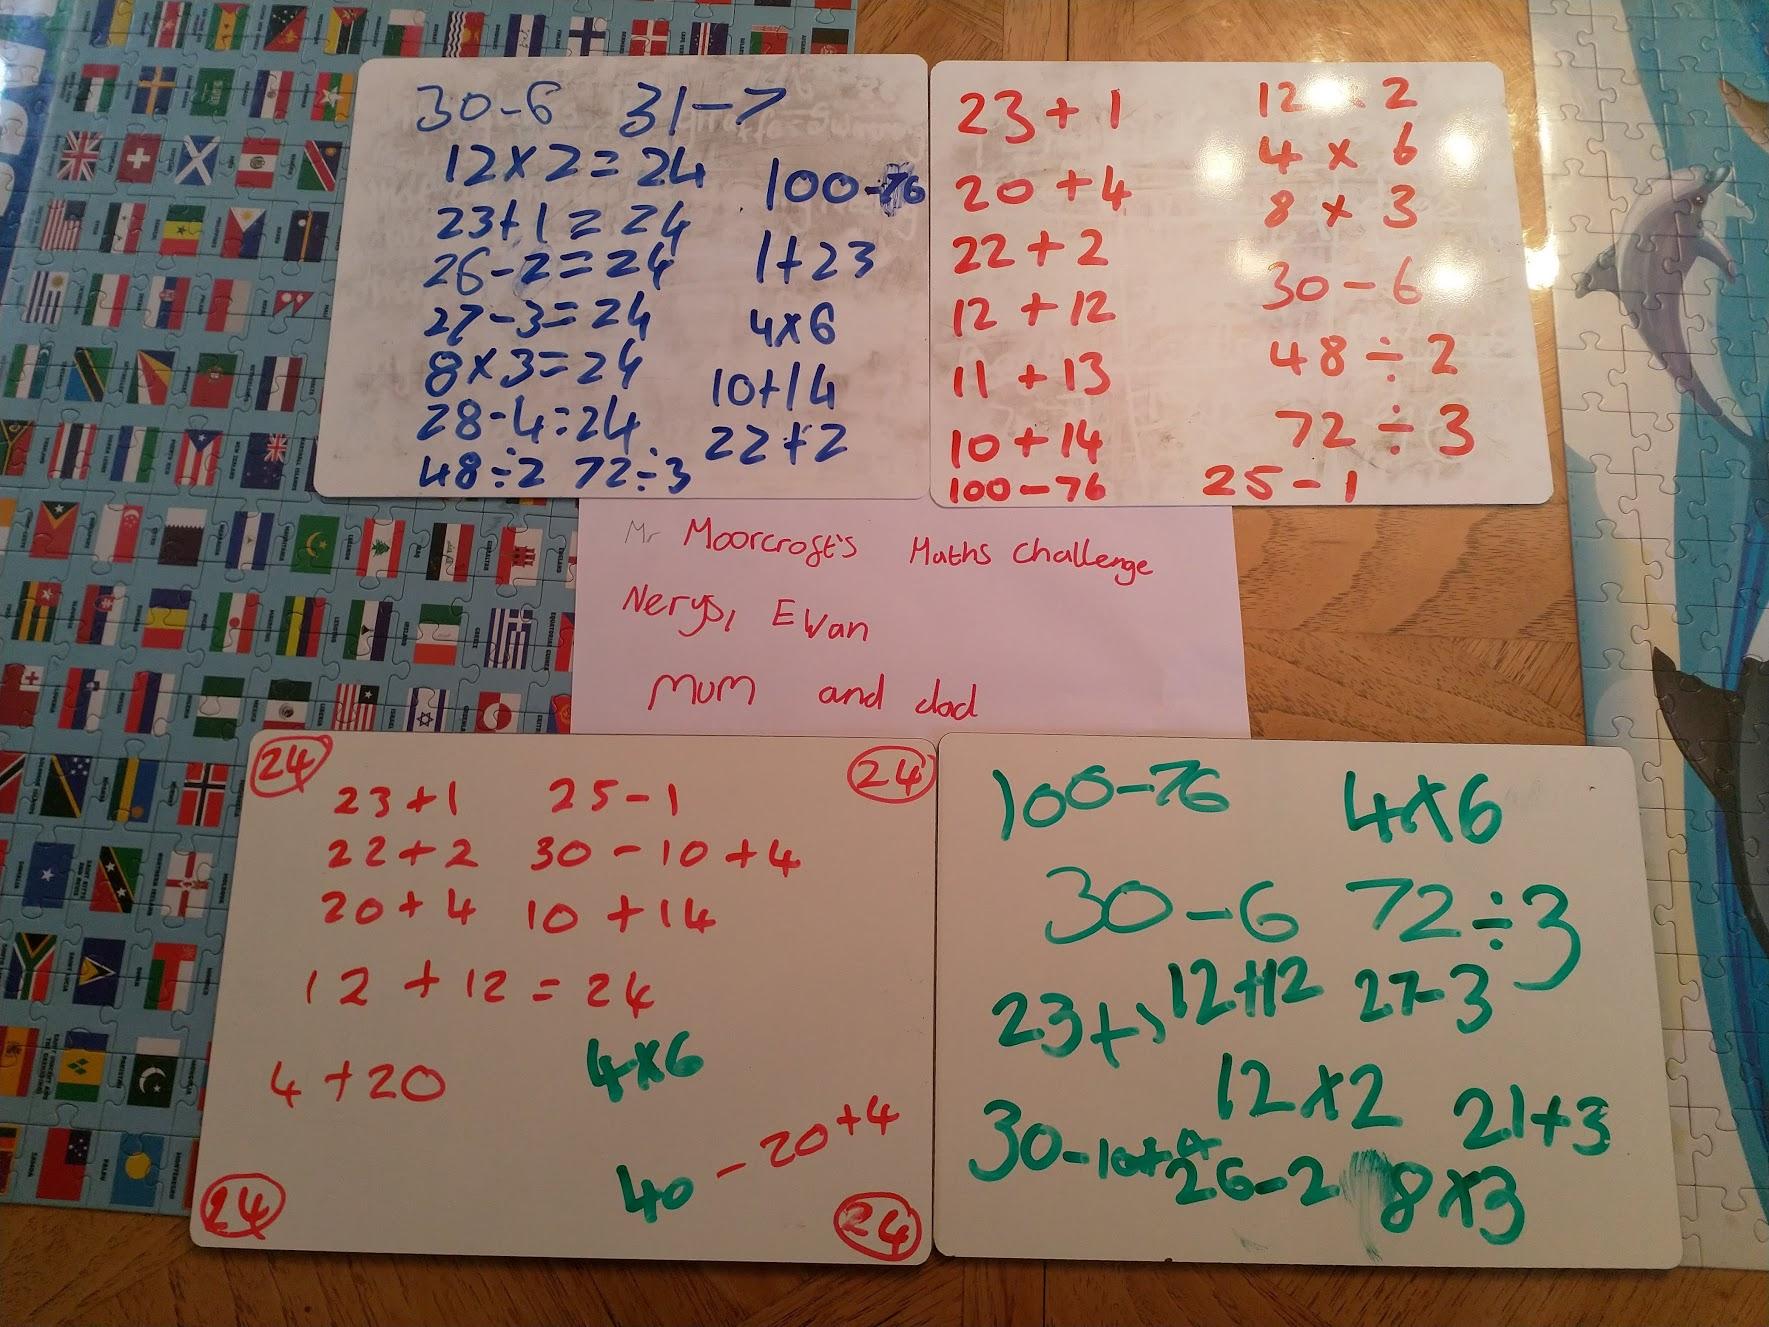 30-6 31-7
12×2=24
23+1=24
26-2=24
27-3=24
8×3=24
28-4=24
48÷2 72÷3
100-76
1+23
4×6
10+14
22+2
23+1
20+4
22+2
12+12
11+13
10+14
100-76
12 × 2
4 × 6
8 × 3
30-6
48÷2
72÷3
25-1
Mr Moorcroft's Maths Challenge
Nerys, Ewan
Mum and dad
24 24
23+1 25-1
22+2 30-10+4
20+4 10+14
12+12=24
4+20 4×6
40-20+4
24 24
100-76 4×6
30-6 72÷3
23+1 12+12 27-3
12×2 21+3
30-10+4 26-2 8×3